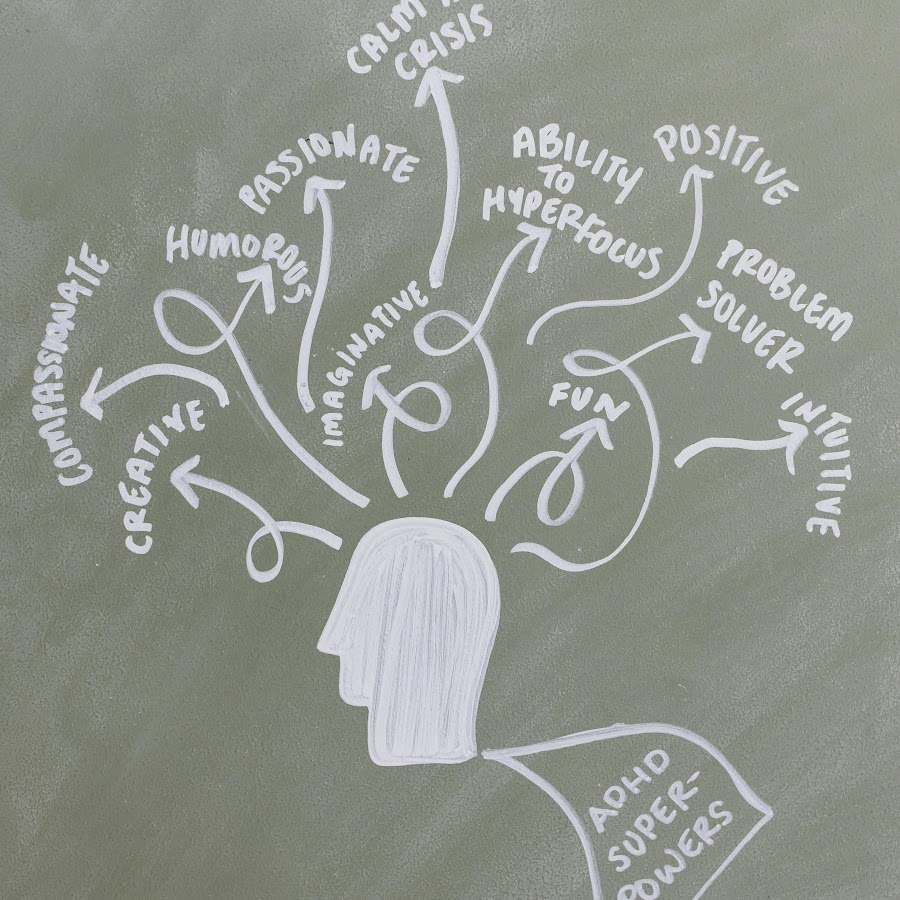 CALM
CRISIS
PASSIONATE
ABILITY
TO
HYPERFOCUS
POSITIVE
HUMOROUS
PROBLEM
SOLVER
COMPASSIONATE
IMAGINATIVE
CREATIVE
FUN
INTUITIVE
ADHD
SUPER-
POWERS